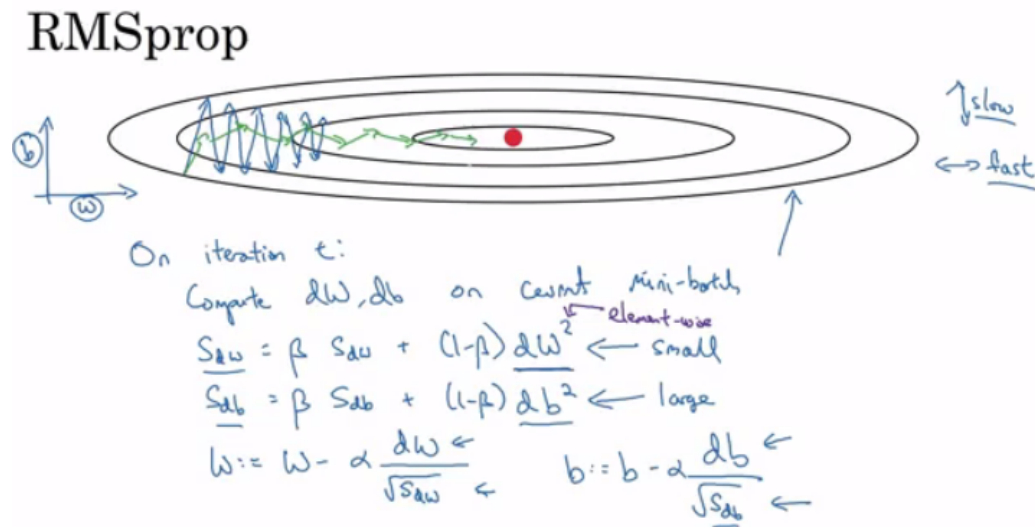 RMSprop
slow
fast
b
w
On iteration t:
Compute dW, db on current mini-batch
element-wise
S_dw = β S_dw + (1-β) dW² ← small
S_db = β S_db + (1-β) db² ← large
W := W - α dW / √S_dw ←
b := b - α db / √S_db ←